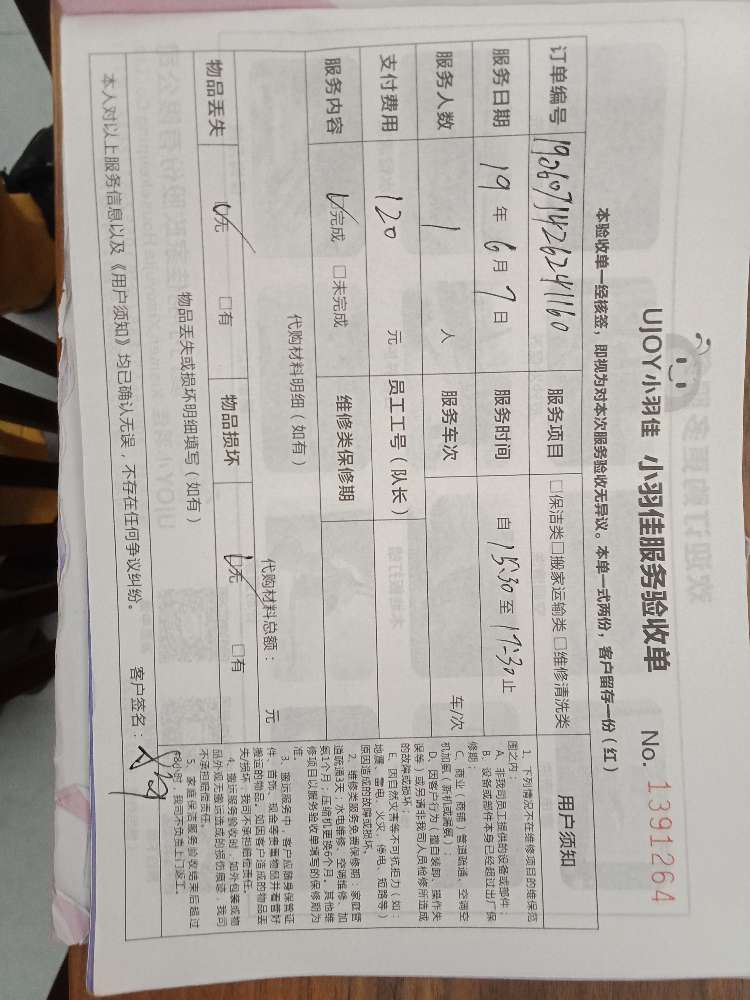 UJOY小羽佳 小羽佳服务验收单 No. 1391264
本验收单一经核签，即视为对本次服务验收无异议。本单一式两份，客户留存一份（红）
订单编号 服务项目 □保洁类□搬家运输类□维修清洗类
服务日期 19年6月7日 服务时间 自15:30至17:30止
服务人数 1人 服务车次 车/次
支付费用 120元 员工工号（队长）
服务内容 ☑完成 □未完成 维修类保修期
代购材料明细（如有） 代购材料总额： 元
物品丢失 ☑无 □有 物品损坏 ☑无 □有
物品丢失或损坏明细填写（如有）
本人对以上服务信息以及《用户须知》均已确认无误，不存在任何争议纠纷。
客户签名：
用户须知
1、下列情况不在维修项目的维保范
围之内：
A、非我司员工提供的设备或部件；
B、设备或部件本身已经超过出厂保
修期；
C、商业（商铺）管道疏通、空调空
机加氨（新机或漏氨）
D、因客户行为（擅自装卸、操作失
误等）或另请非我司人员检修所造成
的故障或损坏；
E、因自然灾害等不可抗拒力（如：
地震、雷电、火灾、停电、短路等）
原因造成的故障或损坏。
2、维修类服务免费保修期：家庭管
道疏通3天；水电维修、空调维修、加
氨1个月；压缩机更换6个月。其他维
修项目以服务验收单填写的保修期为
准。
3、搬运服务中，客户应随身保管证
件、首饰、现金等贵重物品并看管好
搬运的物品，如因客户造成的物品丢
失/损坏，我司不承担赔偿责任。
4、搬运服务验收时，如外包装或物
品外观无搬运造成的损伤痕迹，我司
不承担赔偿责任。
5、家庭保洁服务验收结束后超过
48小时，我司不负责上门返工。